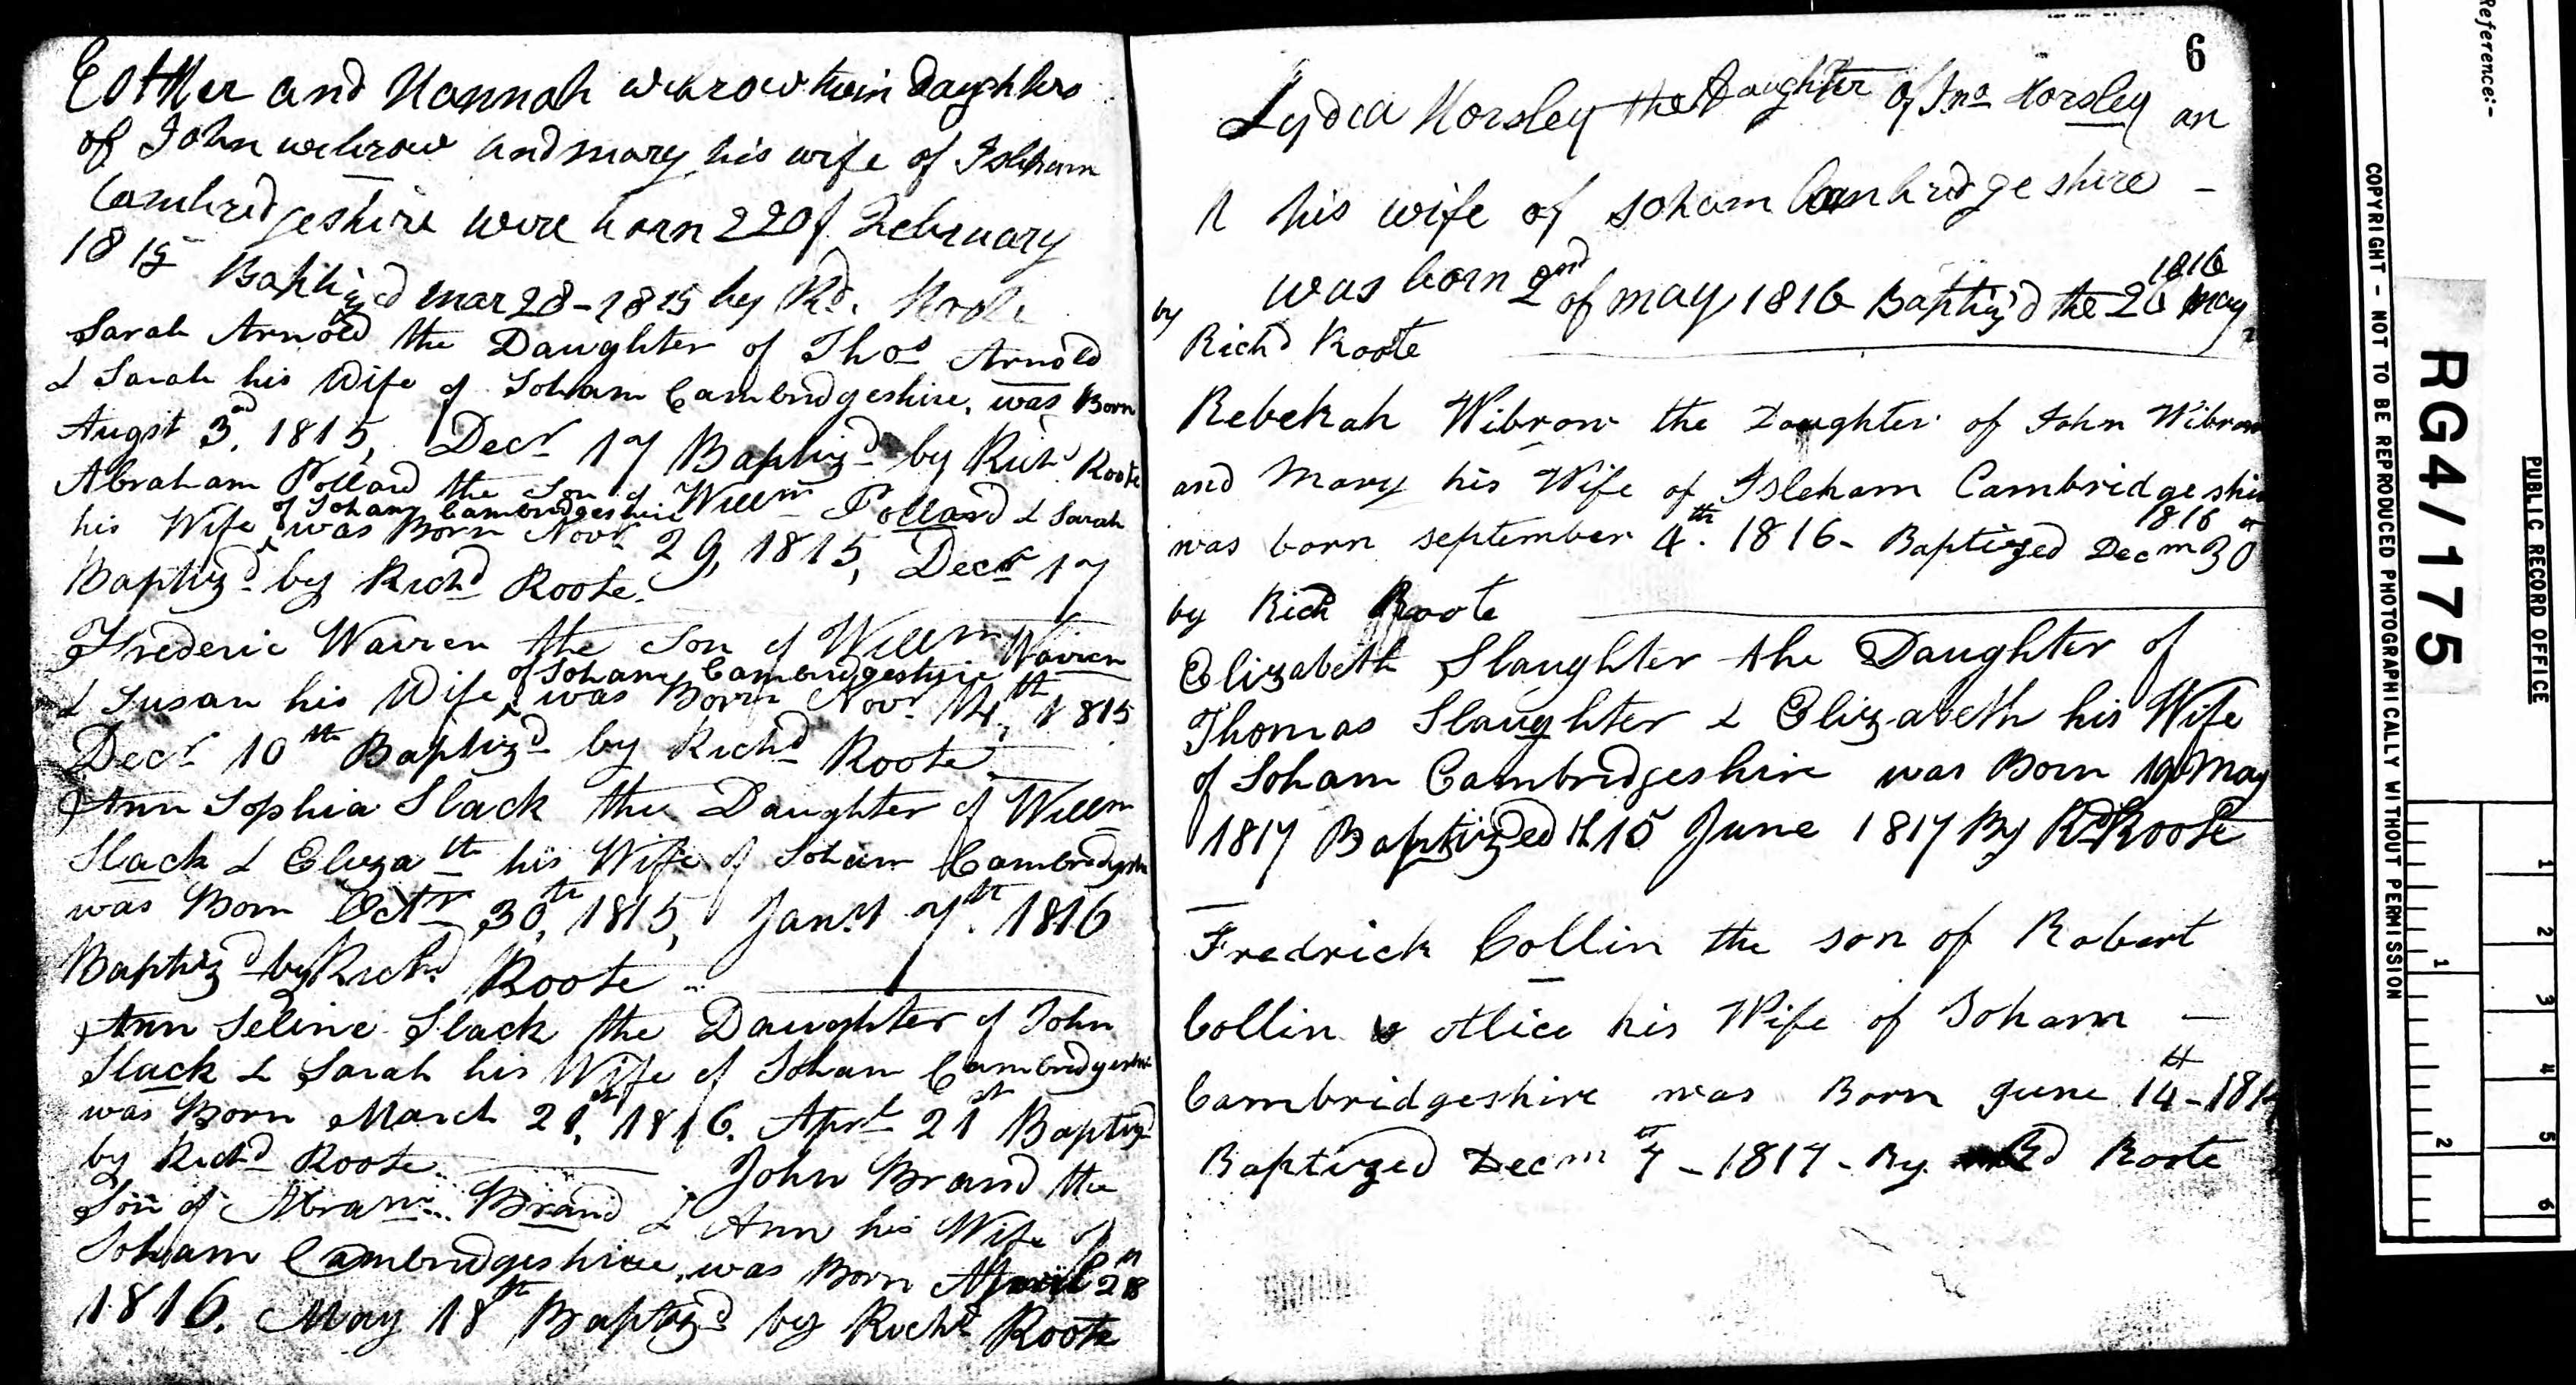 Esther and Hannah wibrow twin Daughters
of John wibrow and mary his wife of Isleham
Cambridgeshire were born 22 of February
1815 Baptiz'd mar 28 - 1815 by Rd. Roote
Sarah Arnold the Daughter of Thos Arnold
& Sarah his Wife of Soham Cambridgeshire, was Born
Augst 3d, 1815, Decr 17 Baptizd by Richd Roote
Abraham Pollard the Son of Willm Pollard & Sarah
of Soham Cambridgeshire
his Wife ^ was Born Novr 29, 1815, Decr 17
Baptizd by Richd Roote.
Frederic Warren the Son of Willm Warren
of Soham Cambridgeshire
& Susan his Wife ^ was Born Novr 14th, 1815
Decr 10th Baptizd by Richd Roote
Ann Sophia Slack the Daughter of Willm
Slack & Elizath his Wife of Soham Cambridgshe
was Born Octr 30th, 1815, Jany 7th 1816
Baptizd by Richd Roote
Ann Seline Slack the Daughter of John
Slack & Sarah his Wife of Soham Cambridgeshire
was Born March 21st, 1816. Aprl 21st Baptizd
by Richd Roote. John Brand the
Son of Abram Brand & Ann his Wife of
Soham Cambridgeshire, was Born April 28
1816. May 18th Baptizd by Richd Roote
6
Lydia Horsley the Daughter of Jno Horsley an
his wife of soham Cambridgeshire -
1816
was born 2nd of may 1816 Baptiz'd the 26 may
by
Richd Roote
Rebekah Wibrow the Daughter of John Wibrow
and Mary his Wife of Isleham Cambridgeshire
1816
was born september 4th. 1816 - Baptized Decm 30
by Richd Roote
Elizabeth Slaughter the Daughter of
Thomas Slaughter & Elizabeth his Wife
of Soham Cambridgeshire was Born 19 May
1817 Baptized 15 June 1817 By Rd Roote
Fredrick Collin the son of Robert
Collin & Alice his Wife of Soham -
Cambridgeshire was Born June 14th - 181
Baptized Decm 7 - 1817 - By Rd Roote
Reference:-
RG4/175
PUBLIC RECORD OFFICE
COPYRIGHT - NOT TO BE REPRODUCED PHOTOGRAPHICALLY WITHOUT PERMISSION
1 2 3 4 5 6
1 2